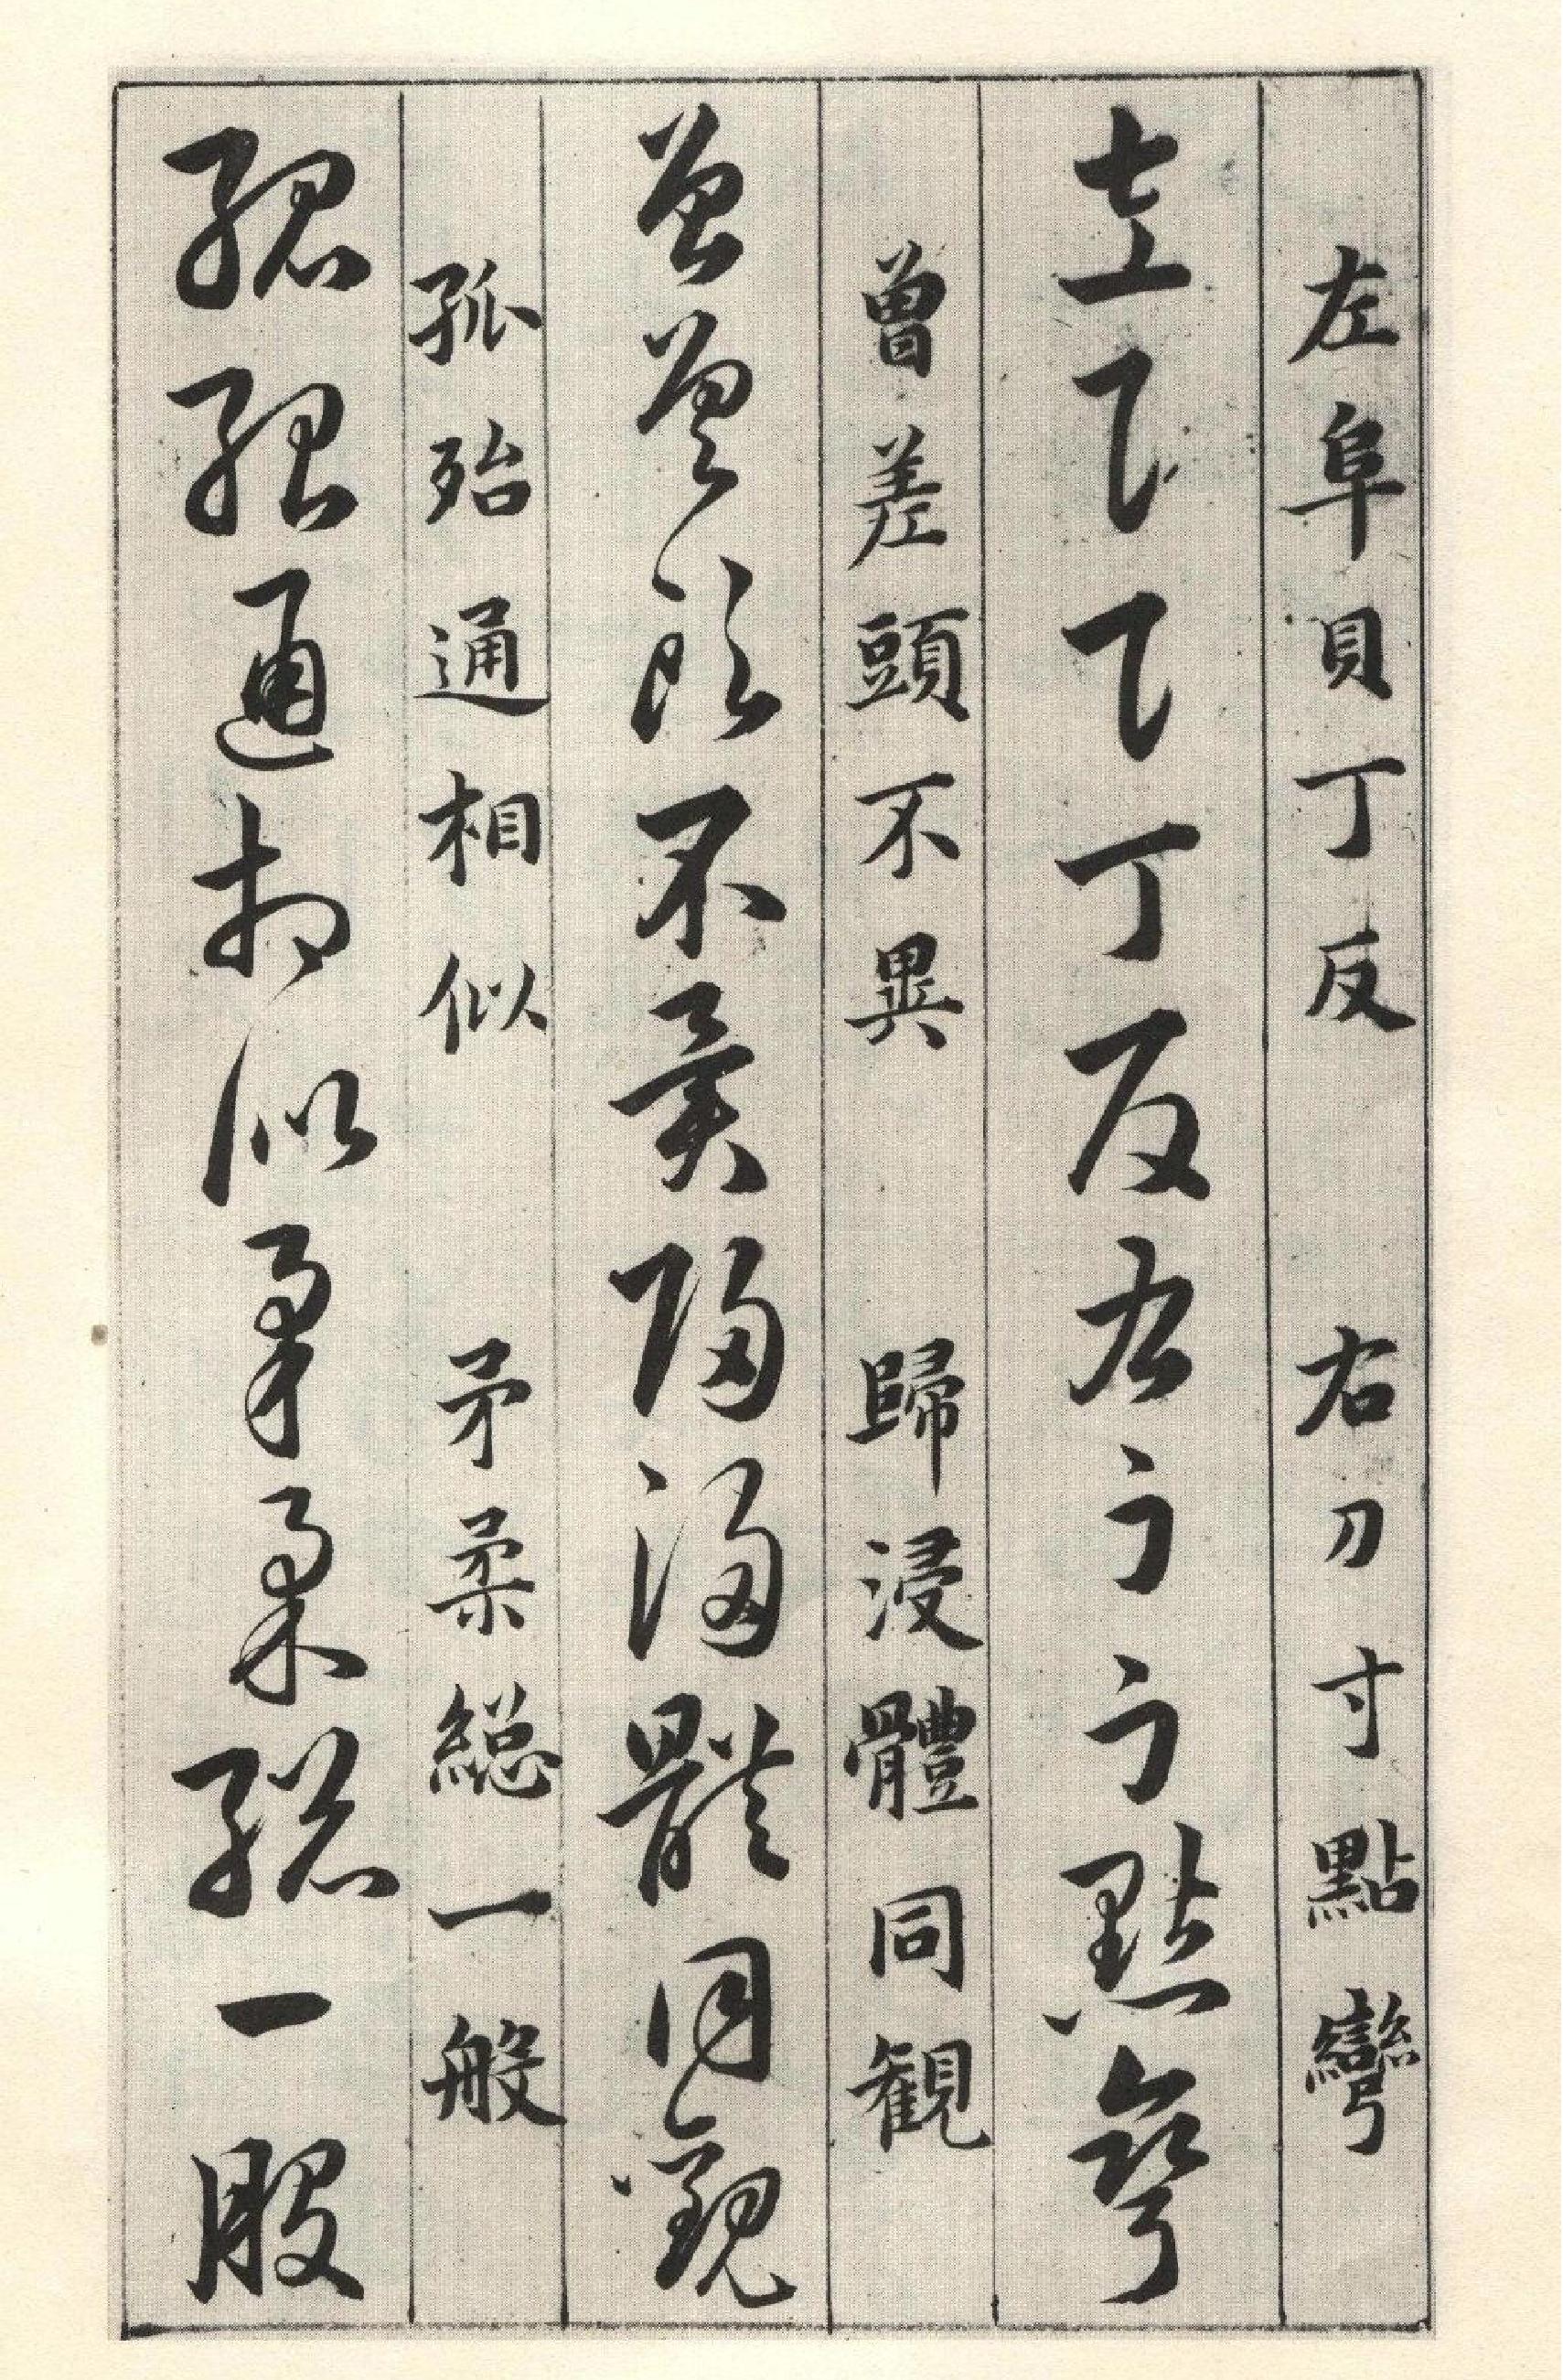 左阜貝丁反　右刀寸點彎
左阜貝丁反右刀寸點彎
曾差頭不異　歸浸體同観
曾差頭不異歸浸體同觀
孤殆通相似　矛柔総一般
孤殆通相似矛柔総一般